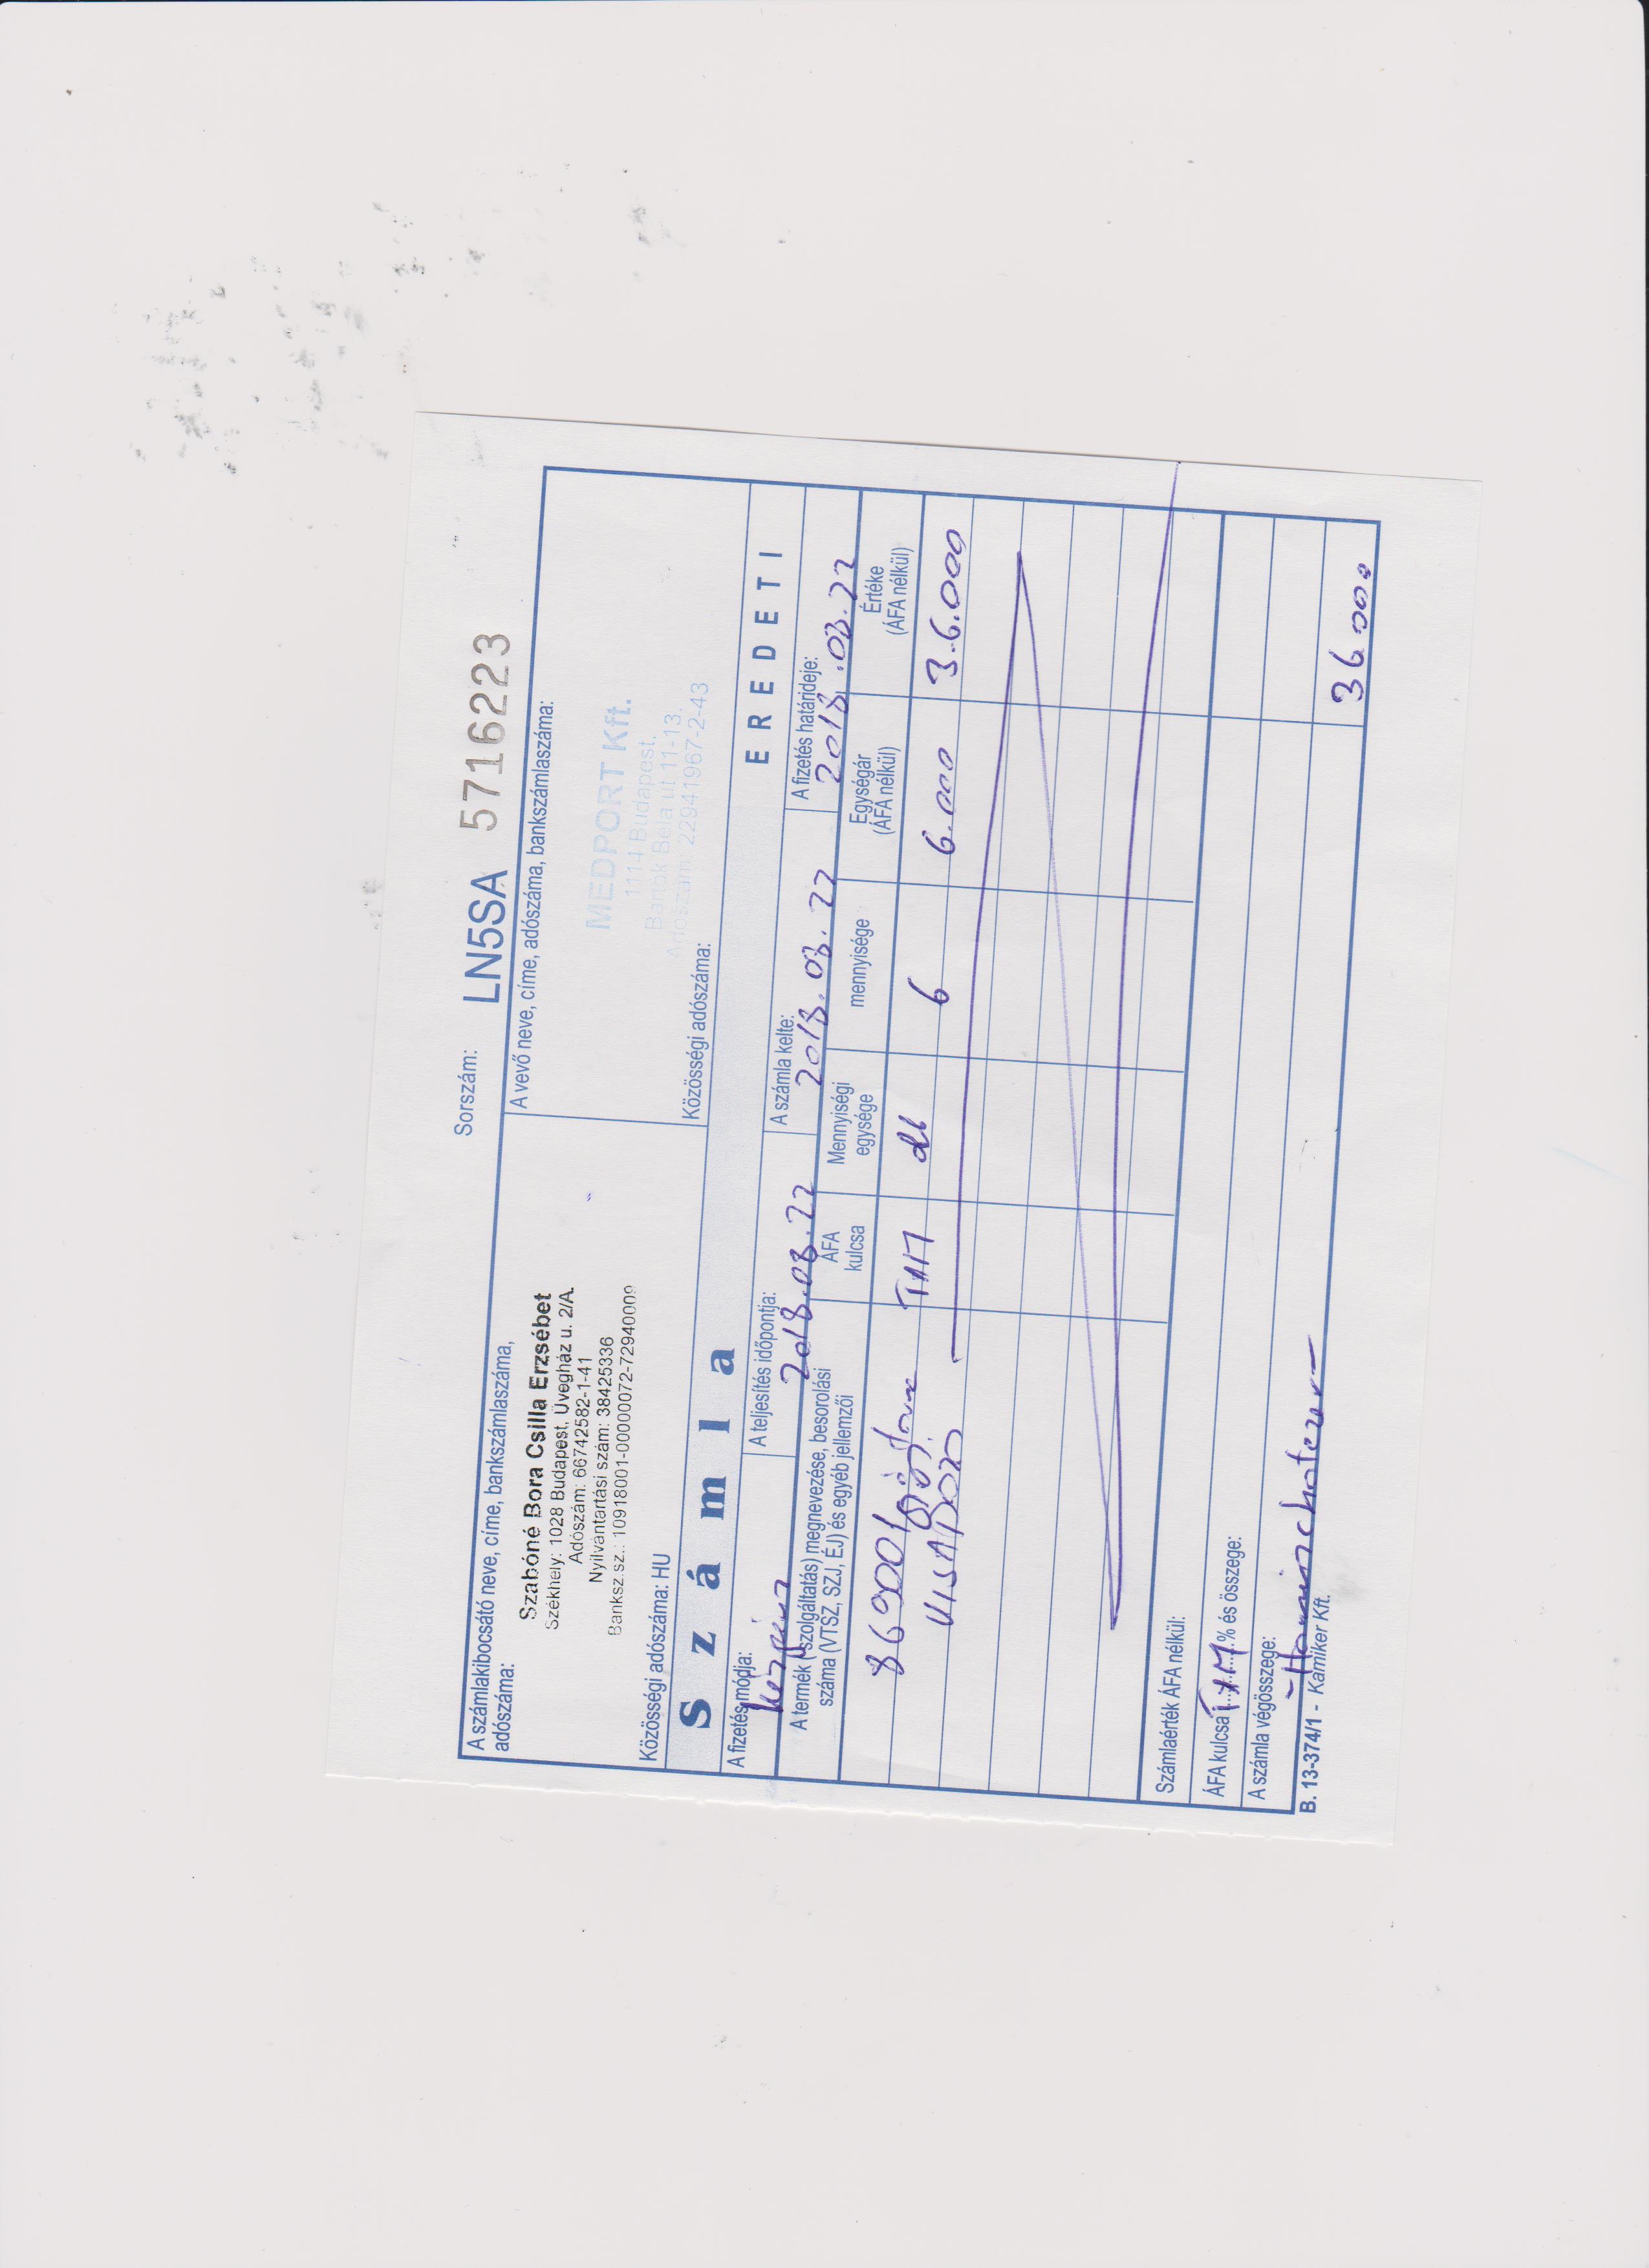 Sorszám: LN5SA 5716223
A számlakibocsátó neve, címe, bankszámlaszáma,
adószáma:
Szabóné Bora Csilla Erzsébet
Székhely: 1028 Budapest, Üvegház u. 2/A.
Adószám: 66742582-1-41
Nyilvántartási szám: 38425336
Banksz.sz.: 10918001-00000072-72940009
Közösségi adószáma: HU
A vevő neve, címe, adószáma, bankszámlaszáma:
MEDPORT Kft.
1114 Budapest,
Bartók Béla út 11-13.
Adószám: 22941967-2-43
Közösségi adószáma:
Számla
EREDETI
A fizetés módja:
készpénz
A teljesítés időpontja:
2018.03.22
A számla kelte:
2018.03.22
A fizetés határideje:
2018.03.22
A termék (szolgáltatás) megnevezése, besorolási
száma (VTSZ, SZJ, ÉJ) és egyéb jellemzői
ÁFA
kulcsa
Mennyiségi
egysége
mennyisége
Egységár
(ÁFA nélkül)
Értéke
(ÁFA nélkül)
86900 TAM db 6 6.000 36.000
Számlaérték ÁFA nélkül:
ÁFA kulcsa TAM % és összege:
A számla végösszege:
-Harminchatezer-
36000
B. 13-374/1 - Kamiker Kft.